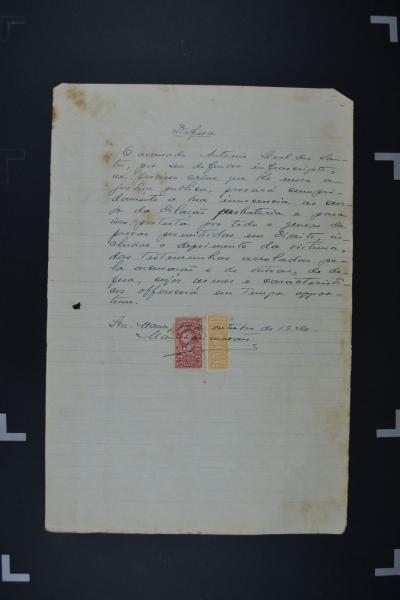 Defesa
O accusado Antonio Leal dos San-
tos, por seu defensor infrascripto,
no processo crime que lhe move a
justiça publica, provará cumpri-
damente a sua innocencia no cur-
so da dilação probatoria e para
isso protesta por todo o genero de
provas permittidos em Direito in-
clusive o depoimento da victima,
das testemunhas arroladas pe-
la accusação e de outras, da de-
feza, cujos nomes e caracteristi-
cos offerecerá em tempo oppor-
tuno.
Sta. Maria, de outubro de